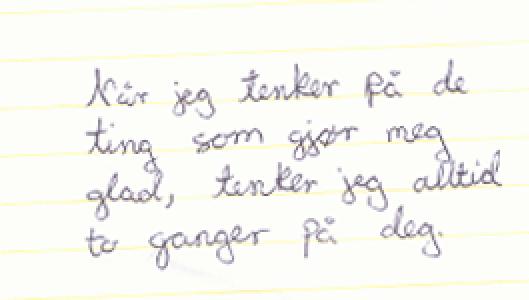 Når jeg tenker på de
ting som gjør meg
glad, tenker jeg alltid
to ganger på deg.